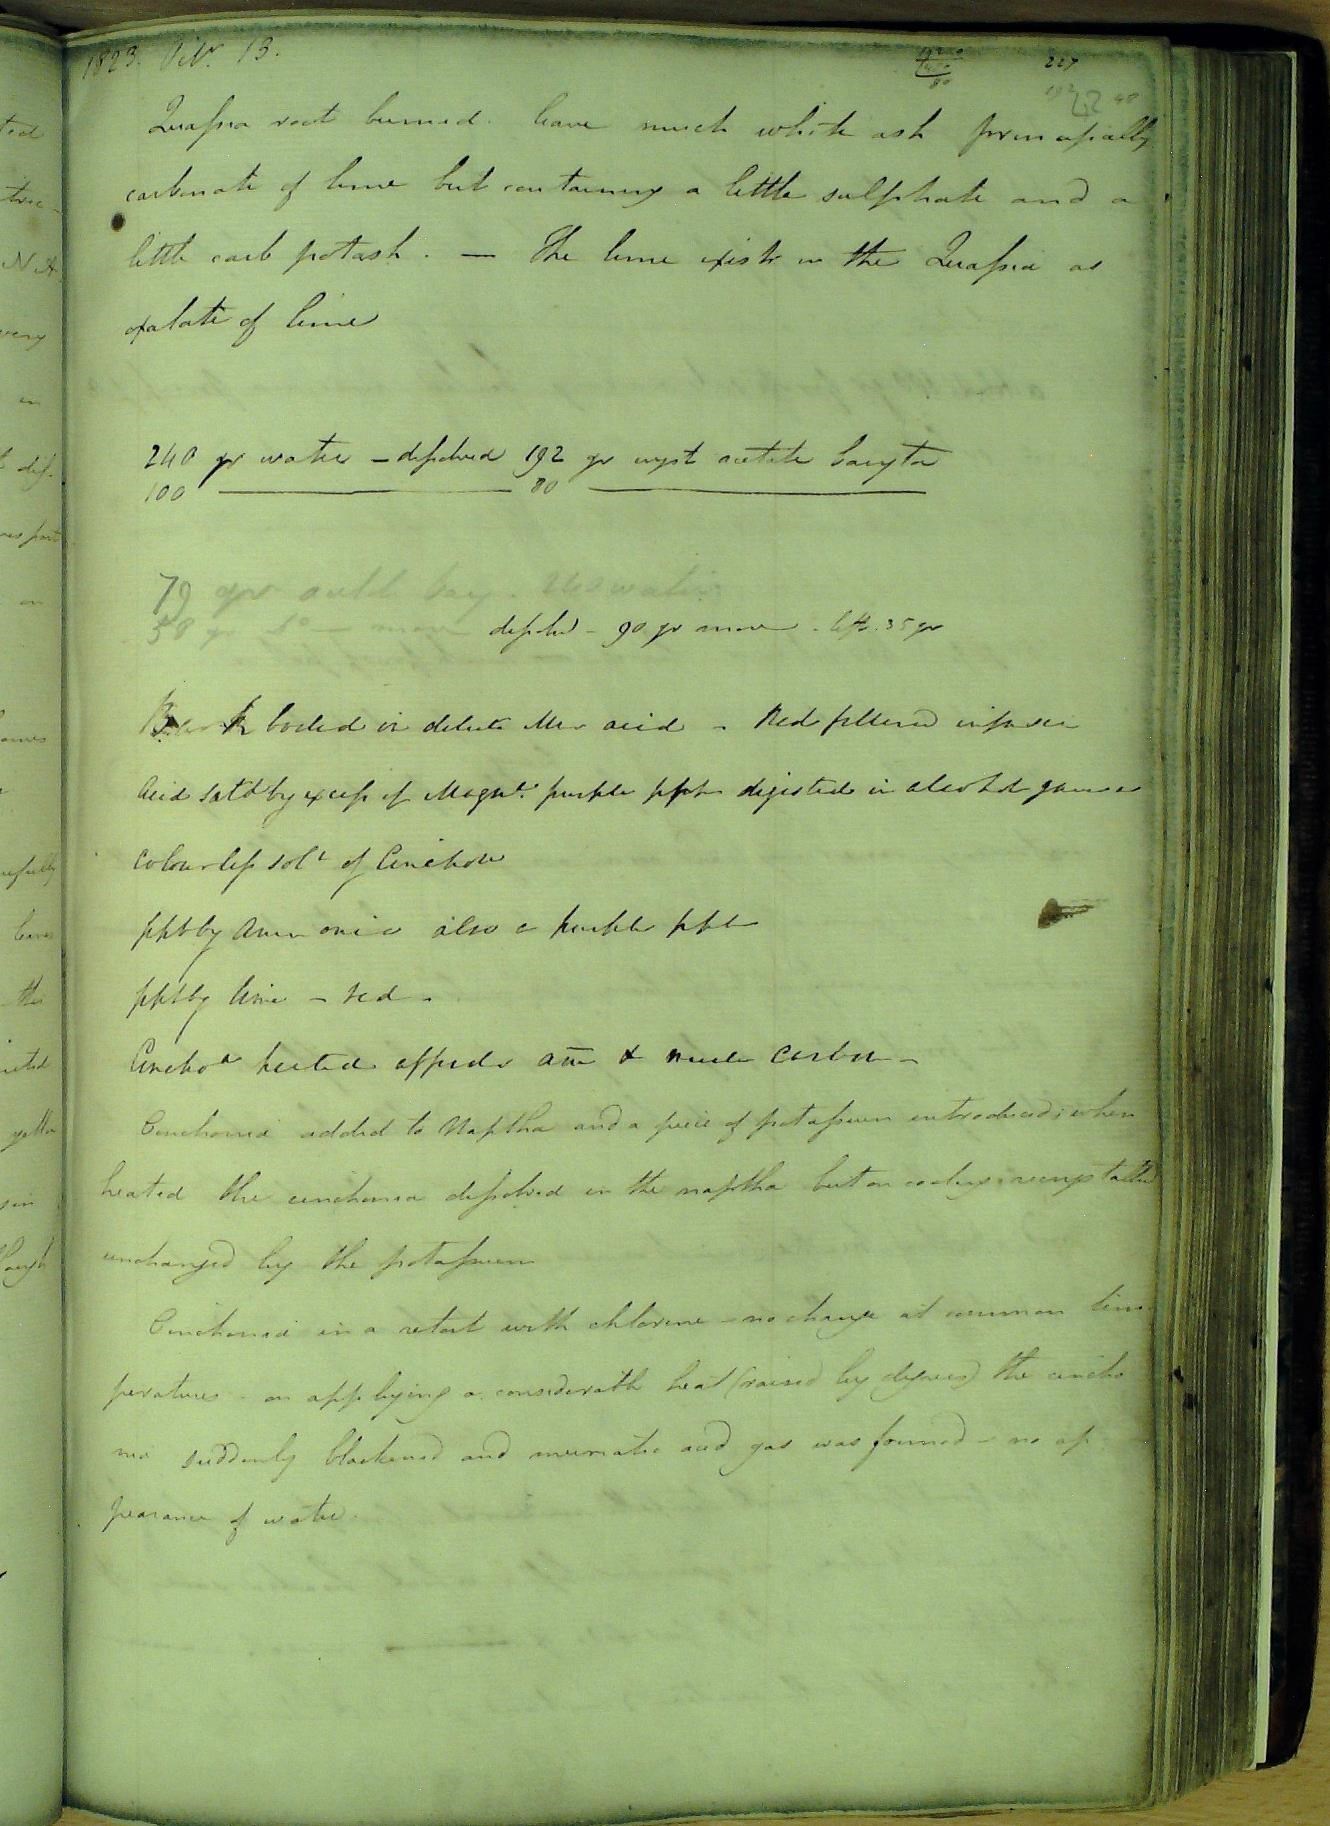 1823. Octr. 13.
227
Quassia root burned. leave much white ash principally
carbonate of lime but containing a little sulphate and a
little carb potash. — The lime exists in the Quassia as
oxalate of lime
240 gr water — dissolved 192 gr cryst acetate baryta
100 ——— 80 ———
79 gr acett bary. water
58 gr Do — more dissolved - 90 gr more - left. 35 gr
Bark boiled in dilute Mur acid - Red filtered infusion
Acid satd by excess of Magna. purple ppt digested in alcohol gave a
Colourless solt of Cinchona
ppt by Ammonia also a purple ppt
ppt by lime - red -
Cinchoa heated affords am & much carbon -
Cinchonia added to Naptha and a piece of potassium introduced; when
heated the cinchonia dissolved in the naptha but on cooling recrystallized
unchanged by the potassium
Cinchonia in a retort with chlorine - no change at common tem
peratures - on applying a considerable heat (raised by degrees) the cincho
nia suddenly blackened and muriatic acid gas was formed - no ap
pearance of water.